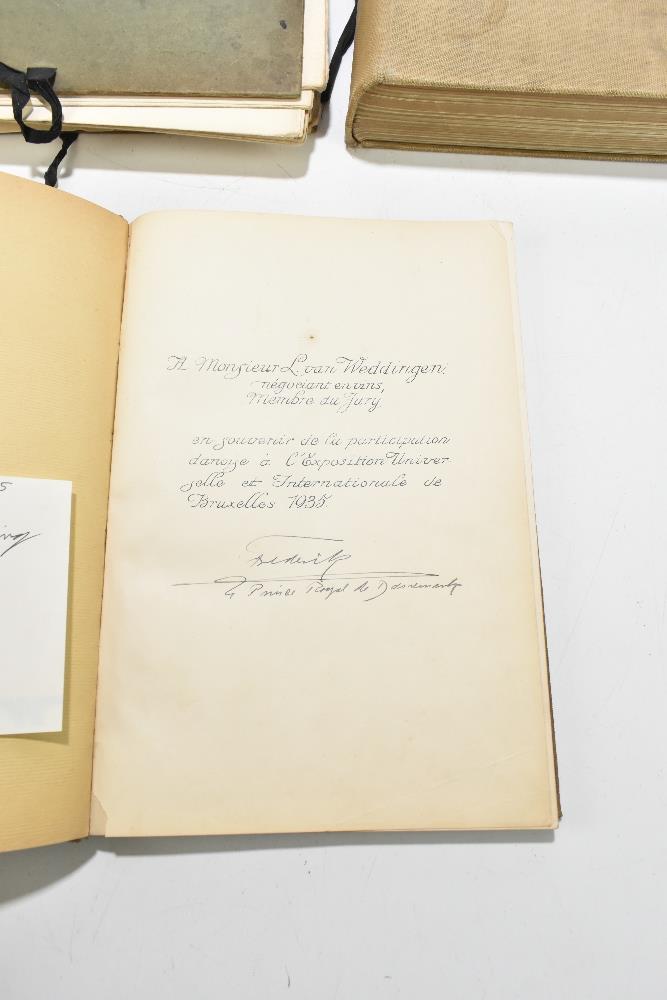 A Monsieur L. van Weddingen,
négociant en vins,
Membre du Jury
en souvenir de la participation
danoise à l'Exposition Univer-
selle et Internationale de
Bruxelles 1935.
Frederik
Prince Royal de Danemark
5